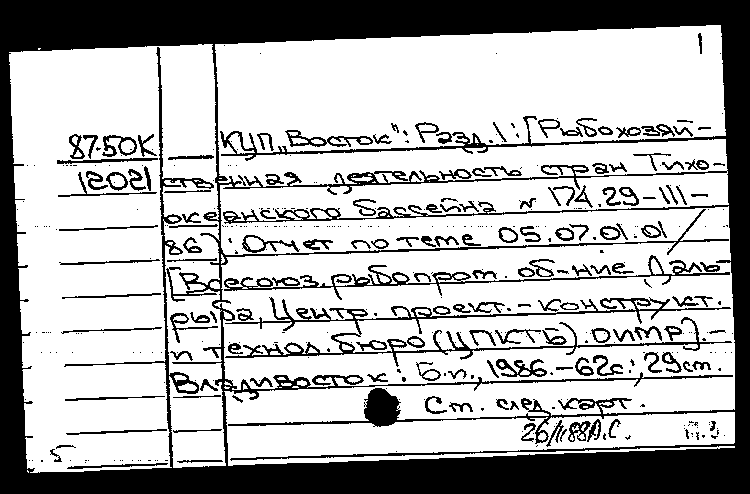 1
87-50К КУП „Восток": Разд.1: [Рыбохозяй-
12021 ственная деятельность стран Тихо-
океанского бассейна № 174.29-III-
86]: Отчет по теме 05.07.01.01 /
[Всесоюз. рыбопром. об-ние Даль-
рыба, Центр. проект.-конструкт.
и технол. бюро (ЦПКТБ). ОИМР].-
Владивосток: Б.и., 1986.-62с.; 29см.
См. след. карт.
26/II88А.С.
5